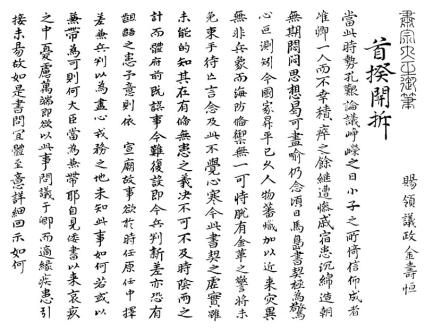 肅宗大王御筆
首揆開拆
賜領議政金壽恒
當此時勢孔艱論議崢嶸之日小子之所倚信仰成者
唯卿一人而不幸積瘁之餘繼遭慘慼宿患沉綿造朝
無期思想曷可盡喩仍念頃日馬島書契極爲驚
心叵測矧今國家昇平已久人物蕃熾加以近來灾異
無非兵象而海防備禦無一可恃脫有金革之警將未
免束手待亡言念及此不覺心寒今此書契之虛實雖
未能的知其在有備無患之義決不可不及時陰雨之
計而體府前旣誤事今難復設卽今兵判新差亦恐有
齟齬之患予意則依 宣廟故事欲於時任原任中擇
差兼兵判以爲盡心戎務之地未知此事如何若或以
兼帶爲可則何大臣當爲兼帶耶自見倭書以來哀疚
之中憂慮萬端卽欲以此事問議于卿而適緣疾患引
接未易故如是書問宜體至意詳細回示如何